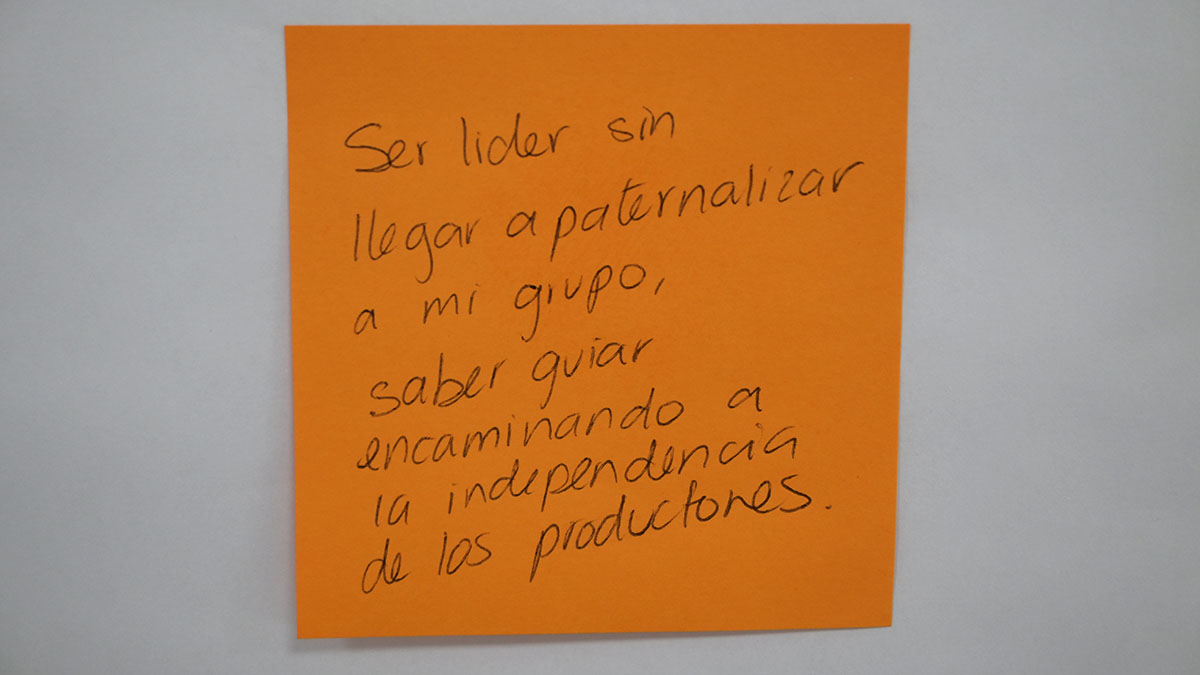 Ser lider sin
llegar a paternalizar
a mi grupo,
saber guiar
encaminando a
la independencia
de los productores.